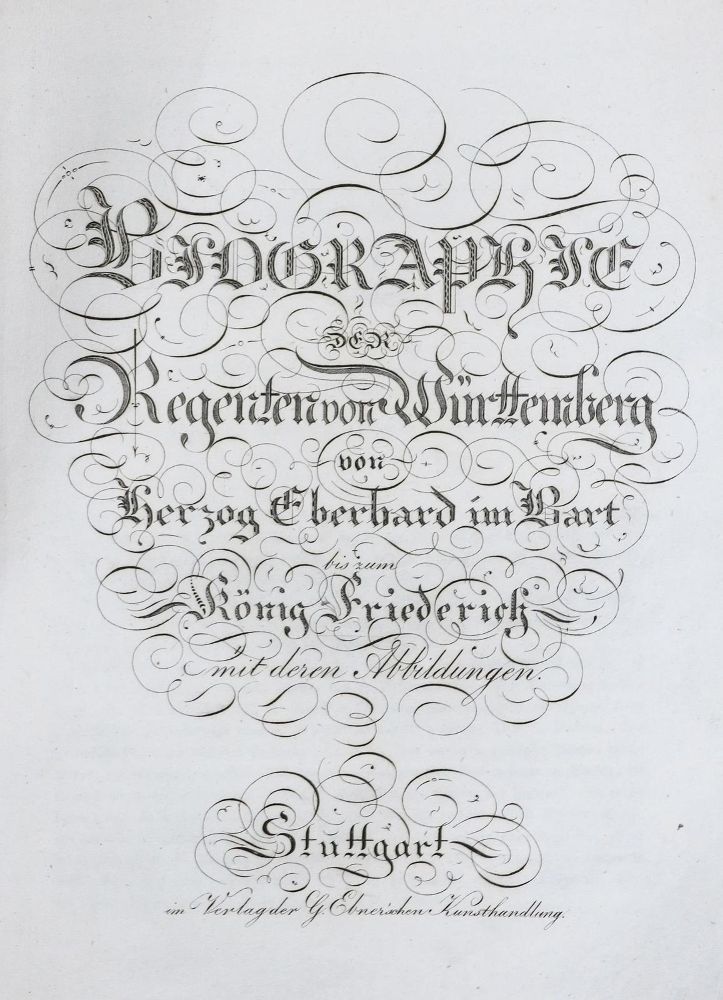 BIOGRAPHIE
DER
Regenten von Württemberg
von
Herzog Eberhard im Bart
bis zum
König Friederich
mit deren Abbildungen.
Stuttgart
im Verlag der G. Ebner'schen Kunsthandlung.